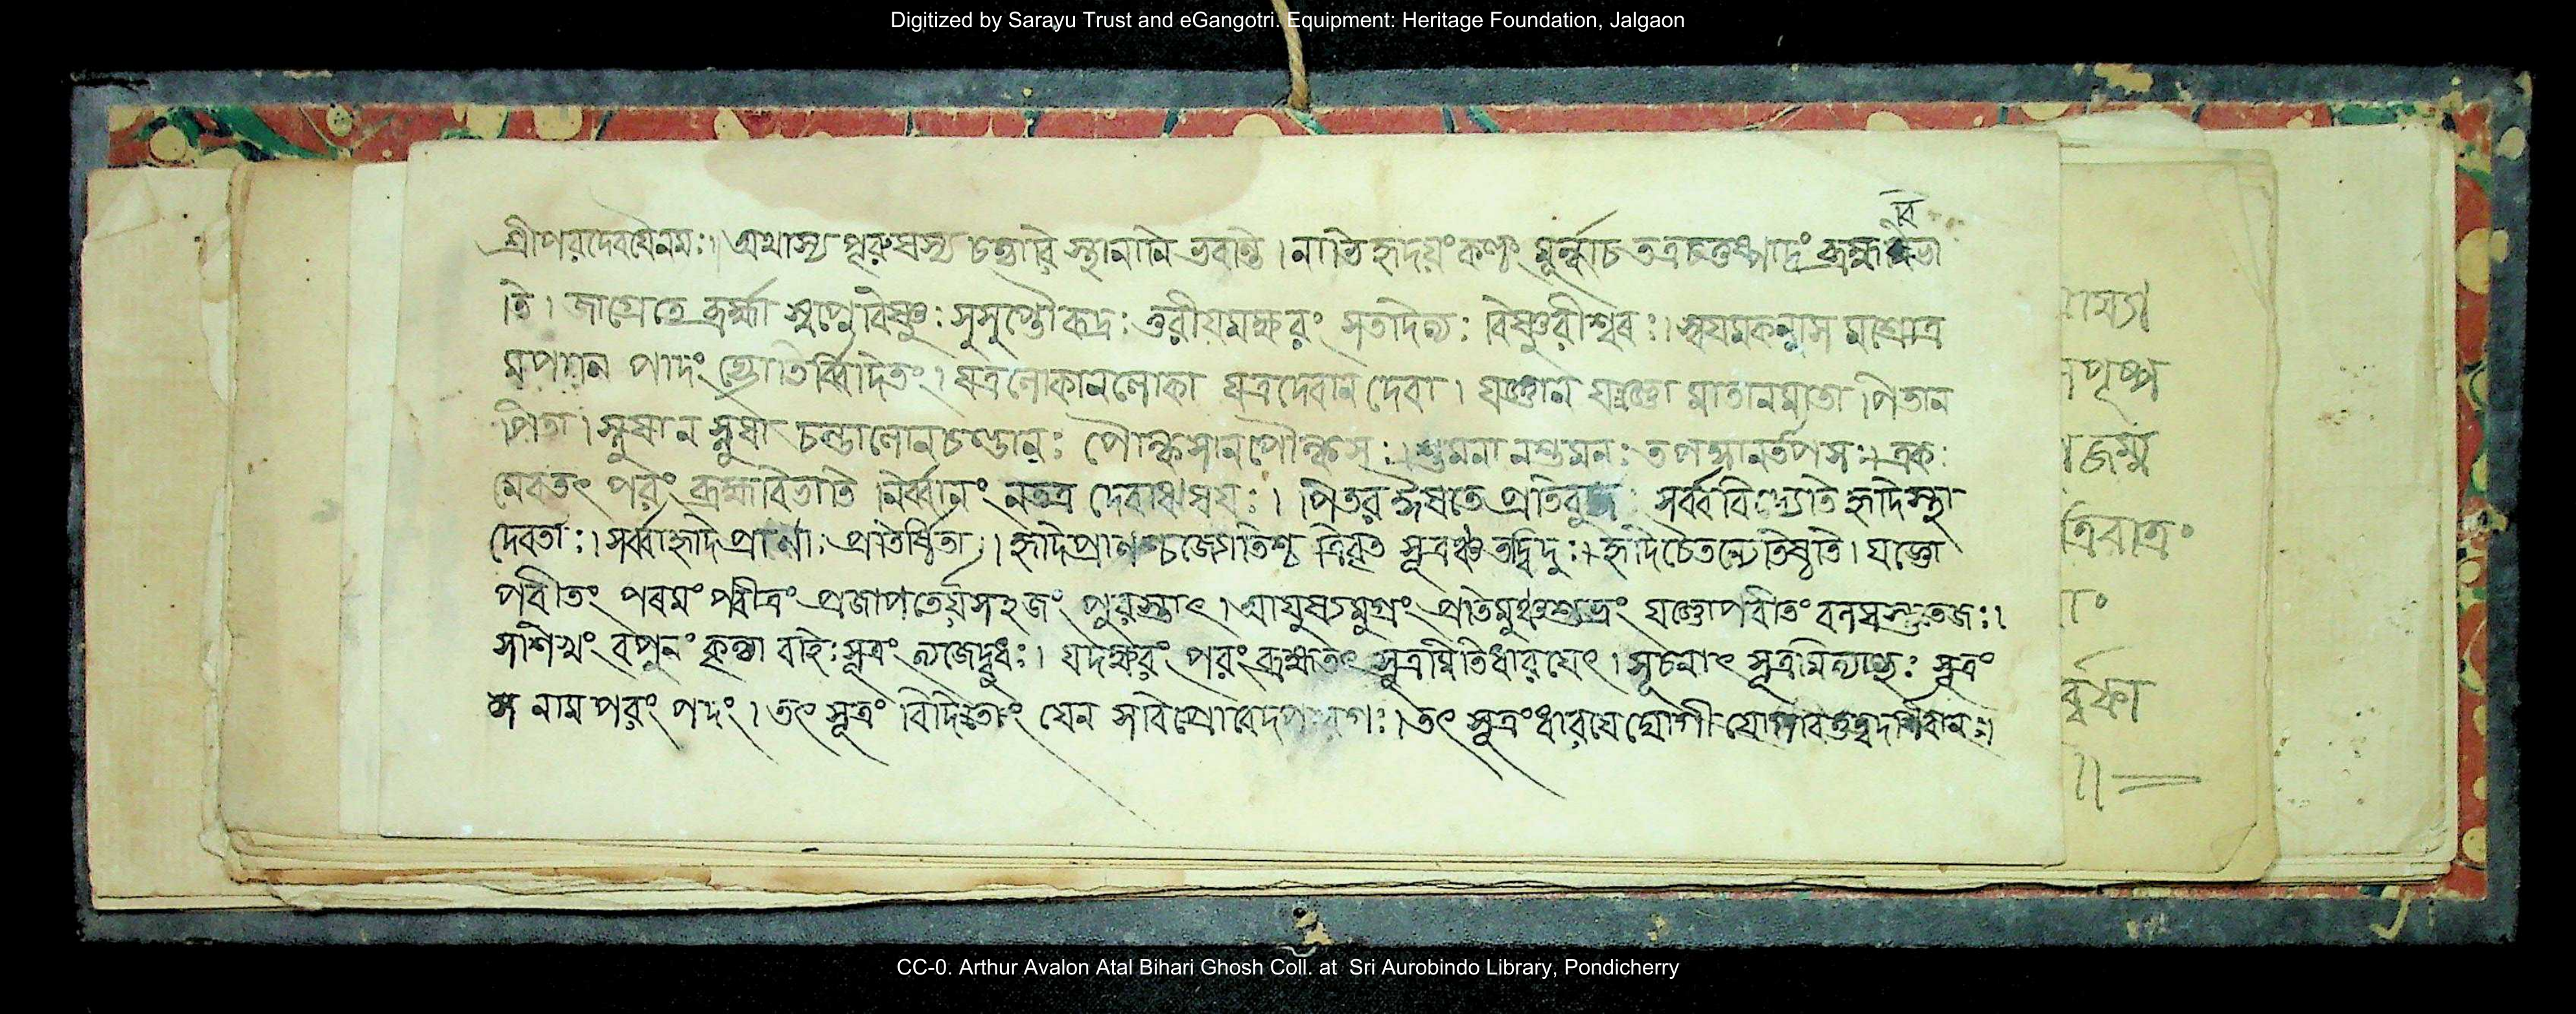 Digitized by Sarayu Trust and eGangotri. Equipment: Heritage Foundation, Jalgaon
বি
শ্রীপরদেবযৈনমঃ। অথাস্য পুরুষস্য চত্বারি স্থানানি ভবান্তি। নাভি হৃদয়ং কণ্ঠং মূর্দ্ধাচ তত্রচতুষ্পাদং ব্রহ্ম ভা
তি। জাগ্রেতে ব্রহ্মা স্বপ্নে বিষ্ণুঃ সুসুপ্তৌ রুদ্রঃ তুরীয়মক্ষরং সতাদিত্যঃ বিষ্ণুরীশ্বৰঃ। স্বযমকন্নাস মশ্রোত্র
মপান পাদং জ্যোতির্ব্বিদিতং। যত্রলোকানলোকা যত্রদেবান দেবা। যজ্ঞান যজ্ঞো মাতানমাতা পিতান
পিতা। স্নুষান স্নুষা চন্ডালোনচণ্ডালঃ পৌল্কসানপৌল্কসঃ। শ্রুমনা নশ্রুমনঃ তপস্বানর্তপসঃ। একঃ
মেবতৎ পরং ব্রহ্মবিভাতি নির্ব্বানং নতত্র দেবাঋষযঃ। পিতর ঈষতে প্রতিবুদ্ধঃ সর্ব্ববিদ্যেতি হৃদিস্থা
দেবতাঃ। সর্ব্বাহৃদিপ্রাণাঃ প্রতিষ্ঠিতা। হৃদিপ্রাণশ্চজ্যোতিশ্চ ত্রিবৃত সূত্রঞ্চ তদ্বিদুঃ। হৃদি চৈতন্যেতিষ্ঠতি। যজ্ঞো
পবীতং পৰমং পবীত্রং প্রজাপতের্য়সহজং পুরস্তাৎ। আযুষ্যমুগ্রং প্রতিমুঞ্চশুভ্রং যজ্ঞোপবীতং বলমস্তুতেজঃ।
সশিখং বপুনং কৃত্বা বহিঃসূত্রং ত্যজেদ্বুধঃ। যদক্ষরং পরংব্রহ্মতৎ সূত্রমিতিধারযেৎ। সূচনাৎ সূত্রমিত্যাহুঃ সূত্রং
নাম পরং পদং। তৎ সূত্রং বিদিতং যেন সবিপ্রোবেদপারগঃ। তৎ সূত্রংধারযেদ্যোগী যোগবিত্তত্ত্বদর্শিবান॥
ত্রিরাত্রং
CC-0. Arthur Avalon Atal Bihari Ghosh Coll. at Sri Aurobindo Library, Pondicherry